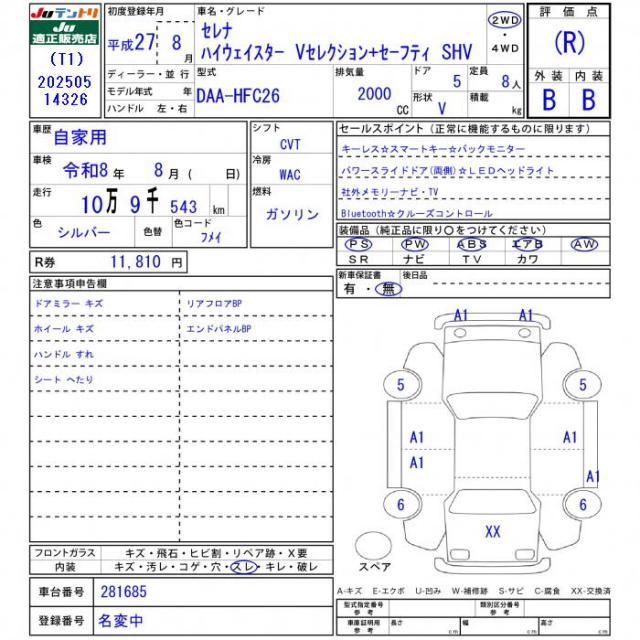 Juテントリ
Ju
適正販売店
(T1)
202505
14326
初度登録年月
平成27 8月
ディーラー・並行
モデル年式 年
ハンドル 左・右
車名・グレード
セレナ
ハイウェイスター Vセレクション+セーフティ SHV
2WD
・
4WD
型式
DAA-HFC26
排気量
2000
CC
ドア 5
形状 V
定員 8人
積載 kg
評価点
(R)
外装 内装
B B
車歴
自家用
車検
令和8年 8月( 日)
走行
10万9千543 km
色
シルバー
色替
色コード
フメイ
シフト
CVT
冷房
WAC
燃料
ガソリン
セールスポイント(正常に機能するものに限ります)
キーレス☆スマートキー☆バックモニター
パワースライドドア(両側)☆LEDヘッドライト
社外メモリーナビ・TV
Bluetooth☆クルーズコントロール
装備品(純正品に限り○をつけてください)
PS PW ABS エアB AW
SR ナビ TV カワ
R券 11,810 円
新車保証書
有・無
後日品
注意事項申告欄
ドアミラー キズ リアフロアBP
ホイール キズ エンドパネルBP
ハンドル すれ
シート へたり
A1 A1
5 5
A1 A1
A1
A1
6 6
XX
スペア
フロントガラス キズ・飛石・ヒビ割・リペア跡・X要
内装 キズ・汚レ・コゲ・穴・スレ・キレ・破レ
車台番号 281685
登録番号 名変中
A-キズ E-エクボ U-凹み W-補修跡 S-サビ C-腐食 XX-交換済
型式指定番号
参考
類別区分番号
参考
車庫証明用
参考
長さ cm 幅 cm 高さ cm